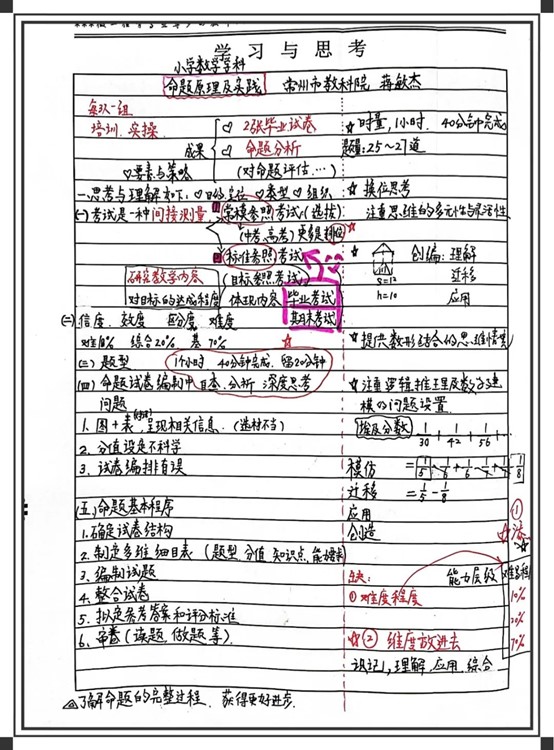 学习与思考
小学数学学科
命题原理及实践 常州市教科院 蒋敏杰
每队一组
培训、实操
成果
2张毕业试卷
命题分析
(对命题评估...)
要素与策略
一、思考与理解 组织
(一)考试是一种间接测量
常模参照考试(选拔)
(中考、高考)
标准参照考试
(目标参照考试)
研究教学内容
对目标的达成程度 体现内容
毕业考试
期末考试
(二)信度、效度 区分度、难度
难10% 综合20% 基70%
(三)题型
1个小时 40分钟完成,留20分钟
(四)命题试卷编制中 自查、分析、深度思考
问题
1. 图+表 呈现相关信息.(选材不当)
2. 分值设定不科学
3. 试卷编排有误
(五)命题基本程序
1.确定试卷结构
2.制定多维细目表(题型 分值 知识点
3.编制试题
4.整合试卷
5.拟定参考答案和评分标准
6.审卷(读题,做题等)
☆时量,1小时. 40分钟完成
题量:25~27道
☆换位思考
注重思维的多元性与灵活性
创编:理解
迁移
应用
S=12
h=10
☆提供数形结合的思维情境
☆注重逻辑推理及数学建
模的问题设置.
埃及分数
1/30 1/42 1/56
模仿
迁移
应用
创造
=1/5-1/6+1/6-1/7+1/7-1/8
=1/5-1/8
①难度程度
能力层级
10%
20%
70%
☆② 维度放进去
识记,理解,应用,综合
了解命题的完整过程、获得更好进步.